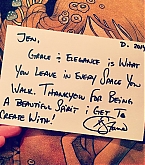 JEN,
D. 2019
GRACE & ELEGANCE IS WHAT
YOU LEAVE IN EVERY SPACE YOU
WALK. THANKYOU FOR BEING
A BEAUTIFUL SPIRIT I GET TO
CREATE WITH!